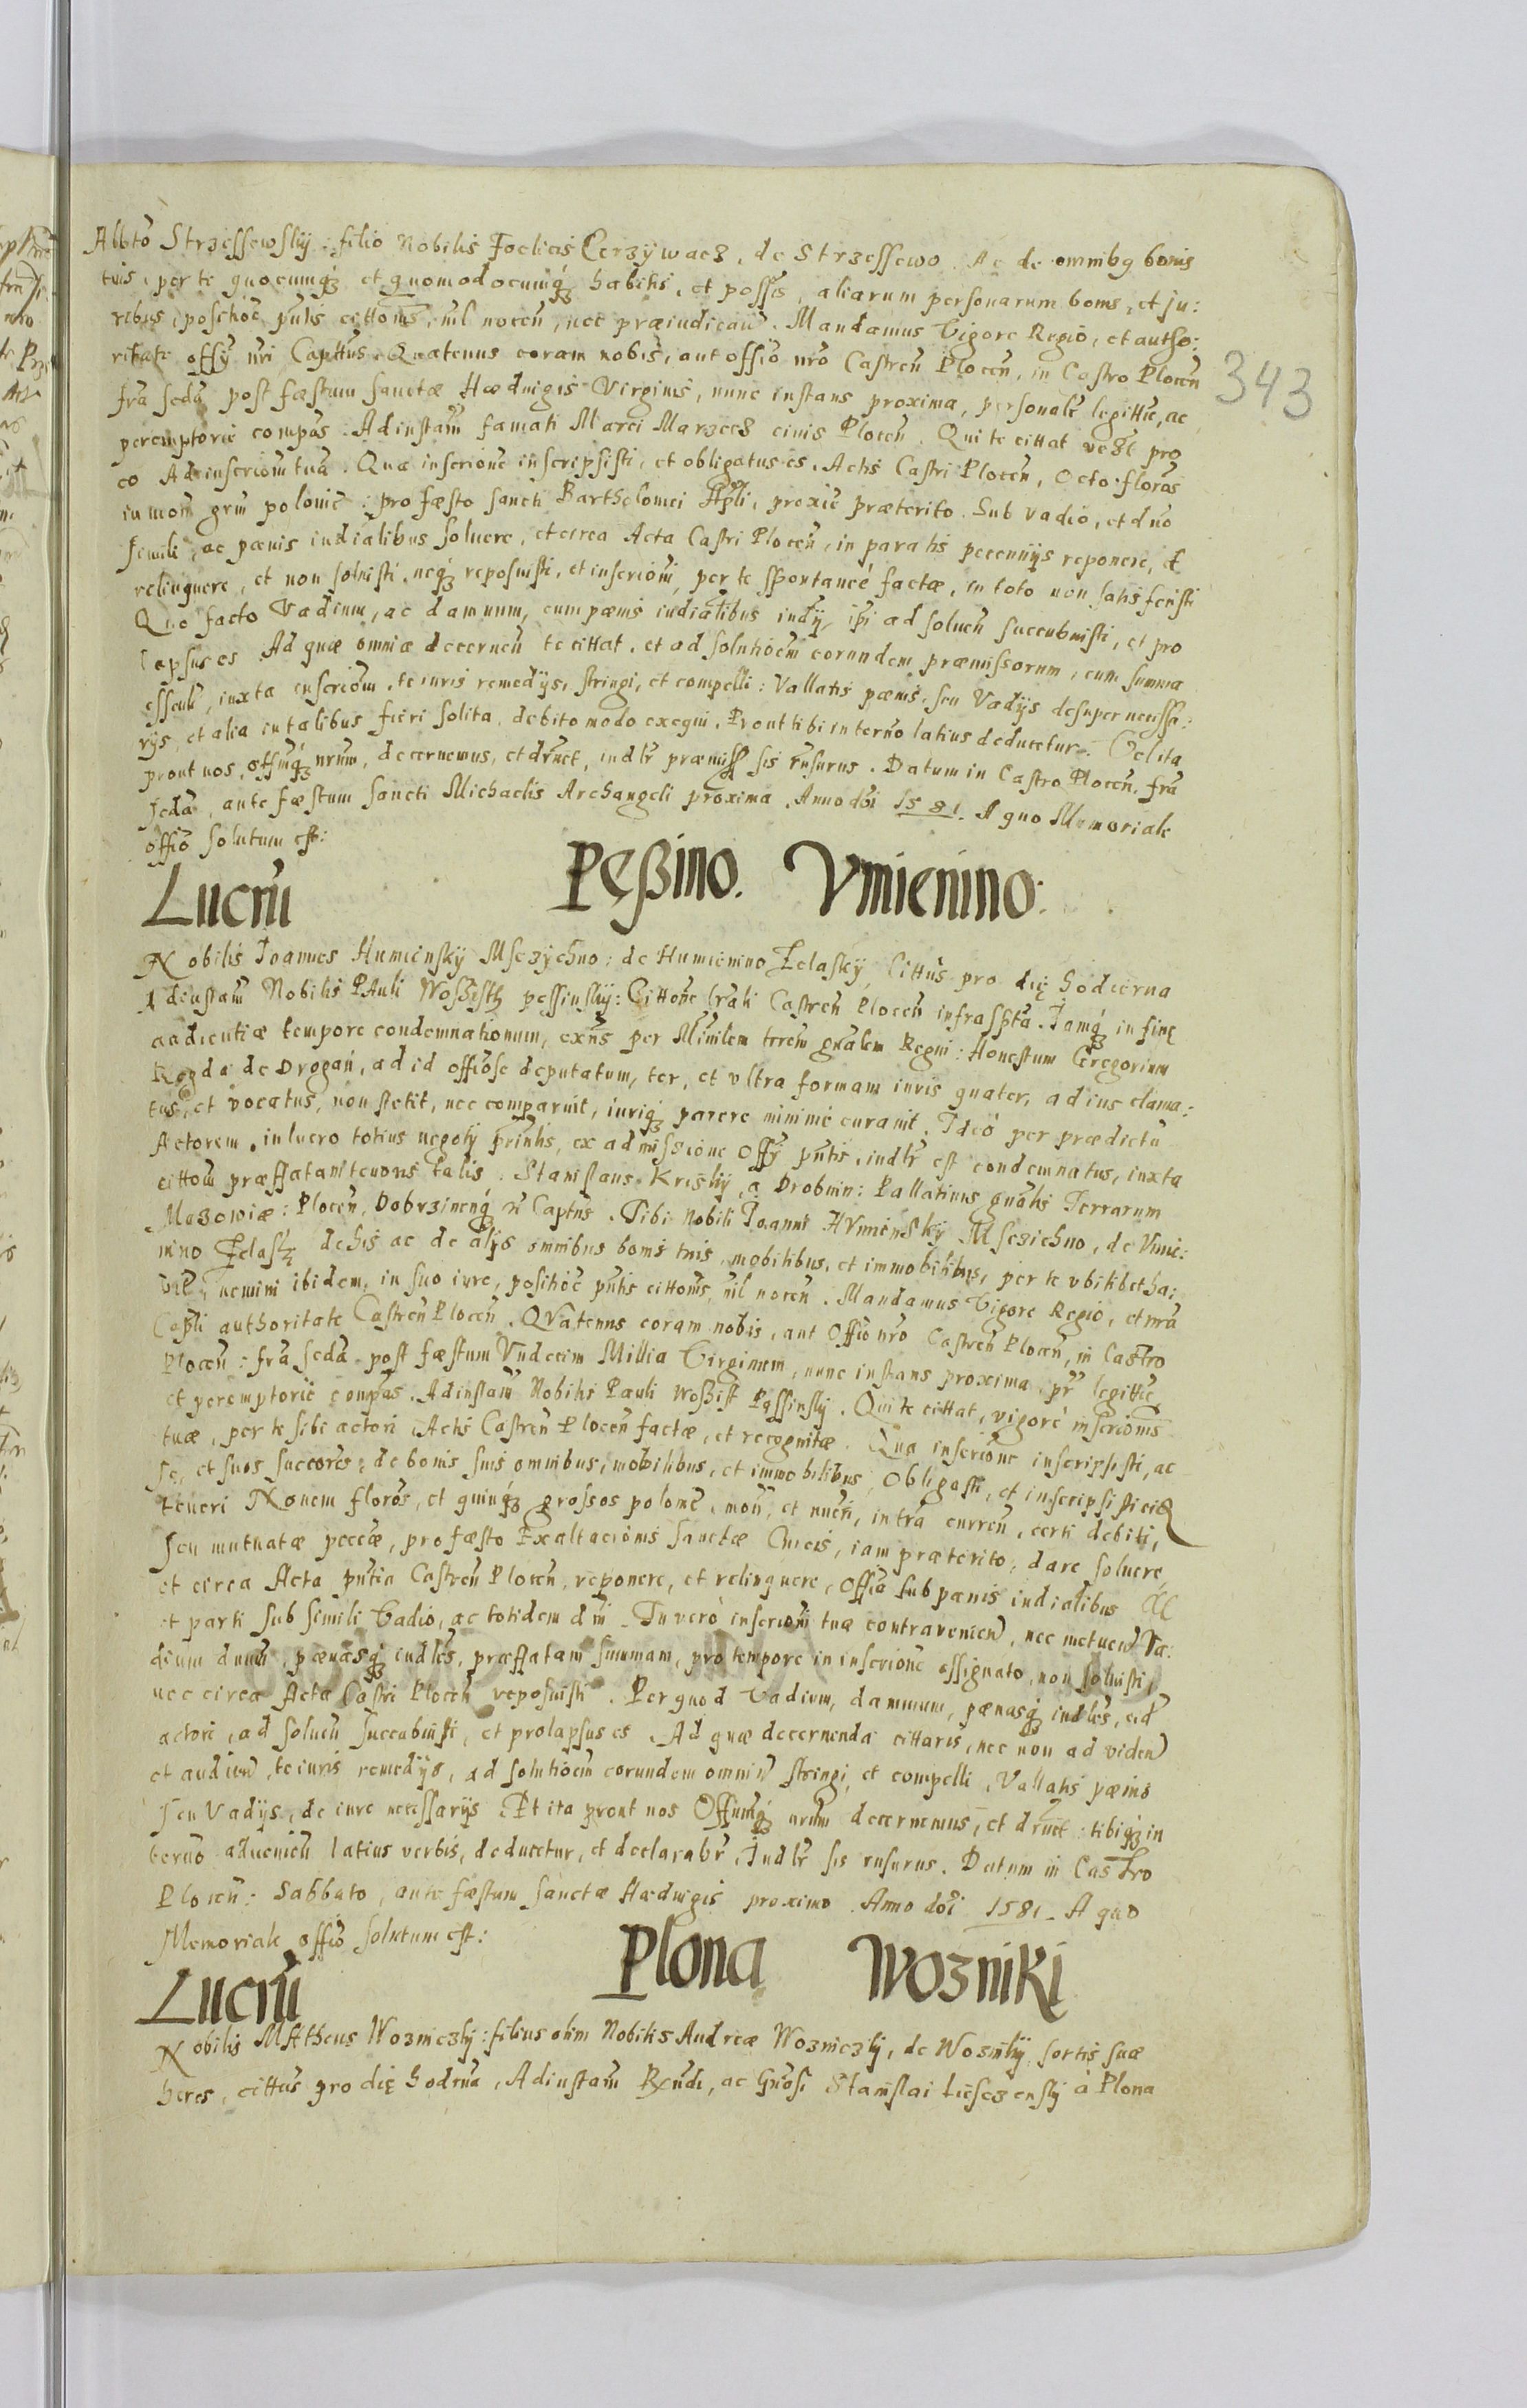 Albto Strzessewskij filio Nobilis Foelicis Cerzÿwacz, de Strzessewo. Ac de omnibq bonis
tuis, per te quocumq́ꝫ et quomodocumq́ꝫ habitis, et possis, aliarum personarum bonis, et ju:
ribus, posithoc pn̄tis cittoīs, nil nocen̄, nec præiudican̄. Mandamus Vigore Regio, et autho:
ritate offÿ nr̄i Capttūs. Quatenus coram nobis, aut offio nr̄o Castren̄ Plocen̄, in Castro Plocen̄
343
fr̄a scdā post fæstum Sanctæ Hæduigis Virginis, nunc instans proxima, personalr̄ legittie, ac
peremptorie compās. Ad instam̄ famati Marci Marzecz ciuis Plocen̄. Qui te cittat pro
eo Ad inscriom̄ tuā. Qua inscrione inscripsisti, et obligatus es. Actis Castri Plocen̄, Octo florōs
in mon̄ grm̄ polonie: pro fæsto Sancti Bartholomei Apl̄i, proxie præterito. Sub vadio, et dn̄o
simili, ac pænis iudialibus soluere, et circa Acta Castri Plocen̄, in paratis pecunijs reponere, &
relinquere, et non soluisti, neq́ꝫ reposuisti, et inscriom̄, per te sspontaneé factæ, in toto non satisfecisti
Quo facto Vadium, ac damnum, cum pænis iudialibus iudÿ, ip̄i ad soluen̄ succubuisti, et pro
lapsus es. Ad quæ omnia decernen̄ te cittat, et ad solutioem̄ eorundem præmissorum, cum summa
essenli, iuxta inscriom̄, te iuris remedijs, stringi, et compelli: Vallatis pænis, seu Vadÿs desuper necessa:
rÿs, et alia in talibus fieri solita, debito modo exequi. Prout tibi in termo latius deducetur. Et ita
prout nos, offimq́ꝫ nrūm, decernemus, et dr̄net, iudlr̄ præmiss sis rn̄surus. Datum in Castro Plocen̄, fr̄a
scdā, ante fæstum Sancti Michaelis Archangeli proxima. Anno dōi 1581. A quo Memoriale
offio solutum est:
Lucrū Pęßino. Vmienino:
Nobilis Joannes Humienskÿ Msczÿchno: de Humienino Zelaskÿ, Cittūs pro dię hodierna
Ad instam̄ Nobilis PAuli pessinskij: Cittone lr̄ali Castren̄ Plocen̄ infrasp̄ta. Jamq́ꝫ in finę
audientiæ tempore condemnationum, exn̄s per Mn̄ilem terem̄ gn̄alem Regni: Honestum Gregorium
de Drogan̄, ad id offiose deputatum, ter, et vltra formam iuris quater, ad ius clama:
tus, et vocatus, non stetit, nec comparuit, iuriq́ꝫ parere minimé curauit. Ideó per prædictū
Actorem, in lucro totius negotÿ prīntis, ex admissione offÿ pn̄tis, iudlr̄ est condemnatus, iuxta
cittom̄ præffatam tenoris talis. Stanislaus Kriskij, a Drobnin: Pallatinus gn̄alis Terrarum
Mazowiæ: Plocen̄, Dobrzinenq́ꝫ &c Captus. Tibi Nobili Joanni HVmienskÿ Msczichno, de Vmie:
nino Zelaskę, de his ac de alÿs omnibus bonis tuis, mobilibus, et immobilibus, per te vbilibet ha:
nemini ibidem, in suo iure, posithoc pn̄tis cittoīs, nil nocen̄. Mandamus Vigore Regio, et nr̄a
Capli authoritate Castren̄ Plocen̄. QVatenus coram nobis, aut Offio nr̄o Castren̄ Plocen̄, in Castro
Plocen̄: fr̄a scdā post fæstum Vndecim Millia Virginum, nunc instans proxima, pr̄ legittie
et peremptorie compās. Ad instam̄ Nobilis Pauli Pessinskÿ. Qui te cittat, vigoré inscrionis
tuæ, per te sibi actori, Actis Castren̄ Plocen̄ factæ, et recognitæ. Qua inscrione inscripsisti, ac
se, et suos succores, de bonis suis omnibus, mobilibus, et immobilibus, Obligasti, et inscripsisti
teneri Nouem florōs, et quinq́ꝫ grossos polonie, mon̄, et nueri, in tra curren̄, certi debiti,
seu mutuatæ pecciæ, pro fæsto Exaltacionis Sanctæ Crucis, iam præterito, dare soluere,
et circa Acta pn̄tia Castren̄ Plocen̄, reponere, et relinquere, Offio sub pænis iudialibus
et parti sub simili Vadio, ac totidem dn̄i. Tu veró inscrioni tuæ contravenien̄, nec metuen̄ Va:
dium dnūm, pænasq́ꝫ iudles, præffatam summam, pro tempore in inscrione assignato, non soluisti,
nec circa Acta Castri Plocen̄ reposuisti. Per quod Vadium, damnum, pænasq́ꝫ iudles, eid
actori, ad soluen̄ succubuisti, et prolapsus es. Ad quæ decernenda cittaris, nec non ad viden̄
et audien̄, te iuris remedÿs, ad solutioem̄ eorundem omniū stringi, et compelli, Vallatis pænis
seu Vadÿs, de iure necessarÿs. Et ita prout nos Offiumq́ꝫ nrūm decernemus, et dr̄net: tibiq́ꝫ in
termo aduenien̄ latius verbis, deducetur, et declarabr̄, Iudlr̄ sis rn̄surus. Datum in Castro
Plocen̄: Sabbato, ante fæstum Sanctæ Hæduigis proximo. Anno dōi 1581. A quo
Memoriale offio solutum est:
Lucrū Plona Wozniki
Nobilis MAtheus Woznieczkj: filius olim Nobilis Andreæ Woznieczkj, de Woznikj sortis suæ
heres, cittūs pro dię hodrna, Ad instam̄ Rn̄di, ac Gn̄osi Stanislai Liesczenskj à Plona